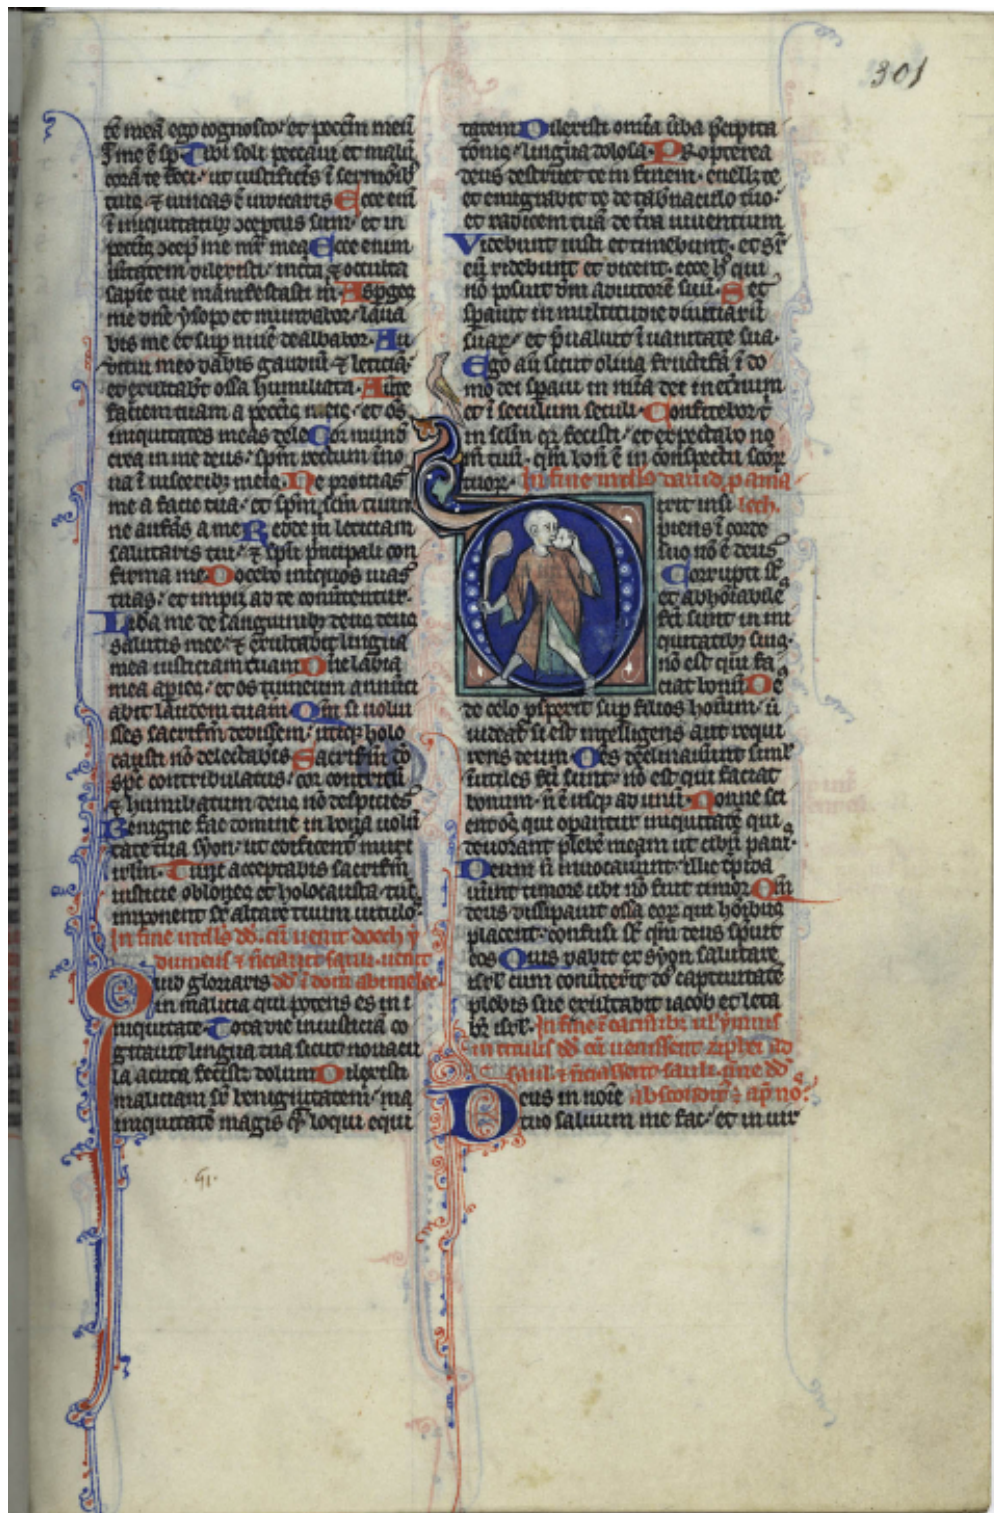 301
tē meā ego cognosco. et pccm̄ meū
ꝯ me ē sp̄ Tibi soli peccaui et malū
corā te feci. ut iustificeris ī sermoīb
tuis ⁊ uincas cū iudicaris Ecce enī
ī iniquitatibꝫ ꝯceptus sum. et in
peccīs ꝯcep̄ me mr̄ mea Ecce enim
ūitatem dilexisti. incta ⁊ occulta
sapīe tue manifestasti m̄ Aspges
me dn̄e ẏsopo et mundabor. laua
bis me et sup niuē dealbabor. Au
ditui meo dabis gaudiū ⁊ leticiā.
et exultabt ossa humiliata. Aūte
faciem tuam a peccīs meis. et oēs
iniquitates meas dele Cor mundū
crea in me deus. spm̄ rectum īno
ua ī uisceribꝫ meis. Ne proicias
me a facie tua. et spm̄ scm̄ tuum
ne auferas a me Redde m̄ leticiam
salutaris tui. ⁊ spū pncipali con
firma me. Docebo iniquos uias
tuas. et impii ad te conuertentur.
Liba me de sanguinibꝫ deus deus
salutis mee. ⁊ exultabit lingua
mea iusticiam tuam Dn̄e labia
mea apies. et os tuum annūci
abit laudem tuam. Qm̄ si uolu
isses sacrificm̄ dedissem. utiqꝫ holo
caustis nō delectaberis Sacrificm̄ do
spc contribulatus. cor contritū
⁊ humiliatum deus nō despicies
Benigne fac domine in bona uolū
tate tua sẏon. ut edificent muri
irlm̄. Tunc acceptabis sacrificm̄
iusticie oblones et holocausta. tūc
imponent sr̄ altare tuum uitulos
In fine intllc dd. cū uenit doech ẏ
dumeus ⁊ nūciauit sauli. uenit
Quid gloriaris dd ī dom̄ abimelec
in malicia qui potens es in i
niquitate. Tota die iniusticiā co
gitauit lingua tua sicut nouacu
la acuta fecisti dolum Dilexisti
maliciam sr̄ benignitatem. ma
iniquitatē magis qm̄ loqui equi
51.
tatem Dilexisti omīa ūba pcipita
tōnis. lingua dolosa. Propterea
deus destruet te in finem. euellet te
et emigrabit te de tabnaculo tuo.
et radicem tuā de tr̄a uiuentium
Videbunt iusti et timebunt. et sr̄
eū ridebunt et dicent. ecce h̄ qui
nō posuit dm̄ adiutorē suū. Set
spauit in multitudīe diuitiarū
suarꝫ. et pualuit ī uanitate sua.
Ego aū sicut oliua fructifa ī do
mo dei spaui in mīa dei in etnum
et ī seculum seculi. Confitebor t̄
in sclm̄ qr fecisti. et expectabo no
m̄ tuū. qm̄ bon̄ ē in conspectu scor
tuor. In fine intllc dauid. p ama
lech.
Dixit insi
piens ī corde
suo nō ē deus
Corrupti st̄
et abhoīabile
fcī sunt in in
quitatibꝫ suis.
nō est qui fa
ciat bonū De
de celo pspexit sup filios hoīum. ū
uideat si est intelligens aut requi
rens deum. Oēs declinauunt simul
īutiles fcī sunt. nō est qui faciat
bonum. n̄ ē usqꝫ ad unū. Nonne sci
ent oēs qui opantur iniquitatē. qui
deuorant plebē meam ut cibū panis
Deum n̄ inuocauunt. illic tpida
uūnt timore ubi nō fuit timor. Qm̄
deus dissipauit ossa eoꝝ qui hoībus
placent. confusi st̄ qm̄ deus spuit
eos Quis dabit ex sẏon salutare
isrl̄. cum conūterit ds captiuitatē
plebis sue exultabit iacob et leta
br̄ isrl̄. In finē ī carminibꝫ ul ẏmnis
in titulis dd cū uenissent ziphei ad
saul ⁊ nūciassent sauli. nne dd
Deus in noīe absconditꝰ ē ap nos.
tuo saluum me fac. et in uir